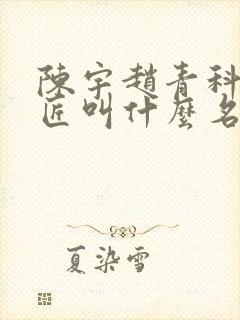 陳宇趙青科
匠叫什麼名
夏染雪